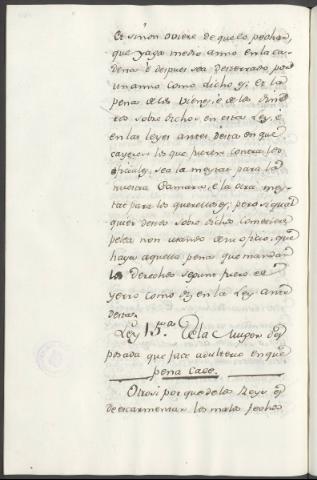 Et sinon oviere de que lo pechar,
que yaga medio anno en la ca-
dena è despues sea desterrado por
un anno como dicho es; Et la
pena de los vienes, è de los dine-
ros sobre dichos en esta Ley, è
en las leyes antes desta en que
cayeren los que fueren contra los
oficiales, sea la meytat para la
nuestra Camara, è la otra mey-
tat para los querellosos; pero si qual
quier destos sobre dichos cometiere
pelea non usando de su oficio, que
haya aquella pena que mandan
los derechos segunt fuere el
yerro como diz en la Ley ante
desta.
Ley 15.a De la Muger des
posada que face adulterio en que
pena cae.
Otrosi por que de los Reyes es
de escarmentar los malos fechos